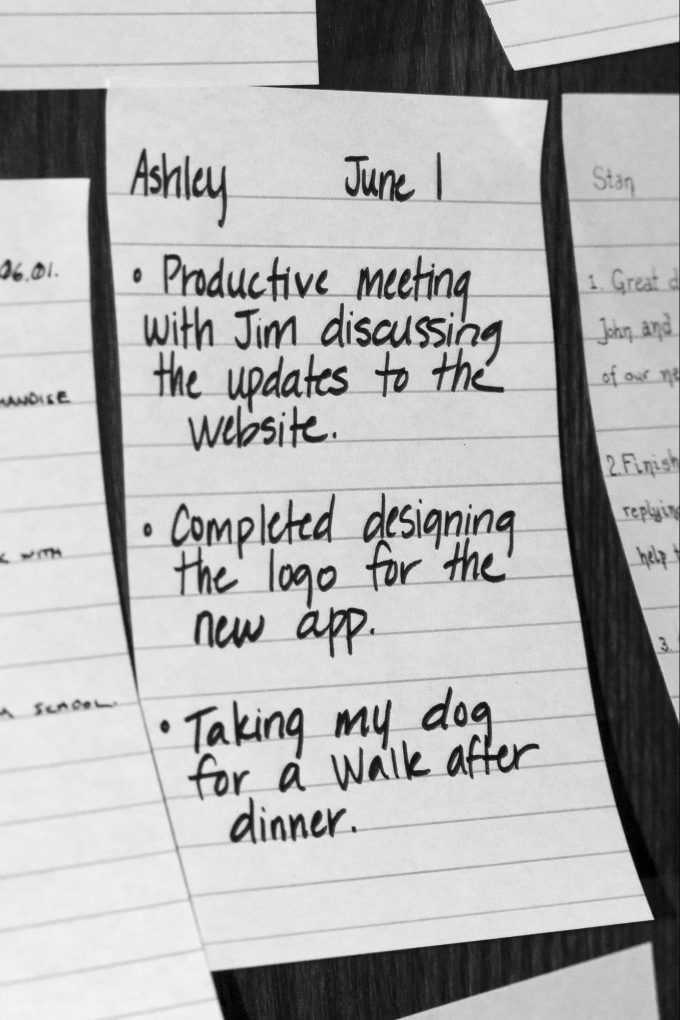 Ashley June 1
• Productive meeting
with Jim discussing
the updates to the
website.
• Completed designing
the logo for the
new app.
• Taking my dog
for a walk after
dinner.
06.01.
WITH
SCHOOL.
Stan
1. Great
John and
of our
2. Finish
help
3.